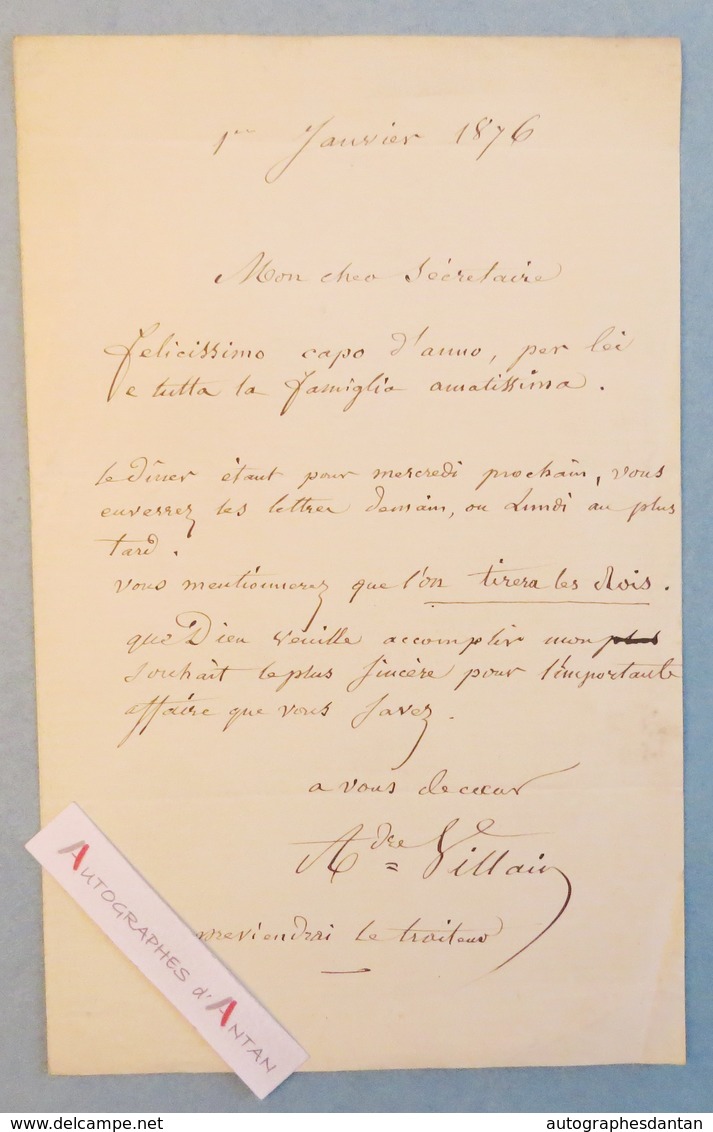 1er Janvier 1876
Mon cher Sécretaire
felicissimo capo d'anno, per lei
e tutta la famiglia amatissima.
le dîner étant pour mercredi prochain, vous
enverrez les lettres demain, ou Lundi au plus
tard.
vous mentionnerez que l'on tirera les Rois.
que Dieu veuille accomplir mon plus
souhait le plus sincère pour l'importante
affaire que vous savez.
a vous de cœur
Adre = Villain
previendrai le traiteur
AUTOGRAPHES d'ANTAN
www.delcampe.net
autographesdantan